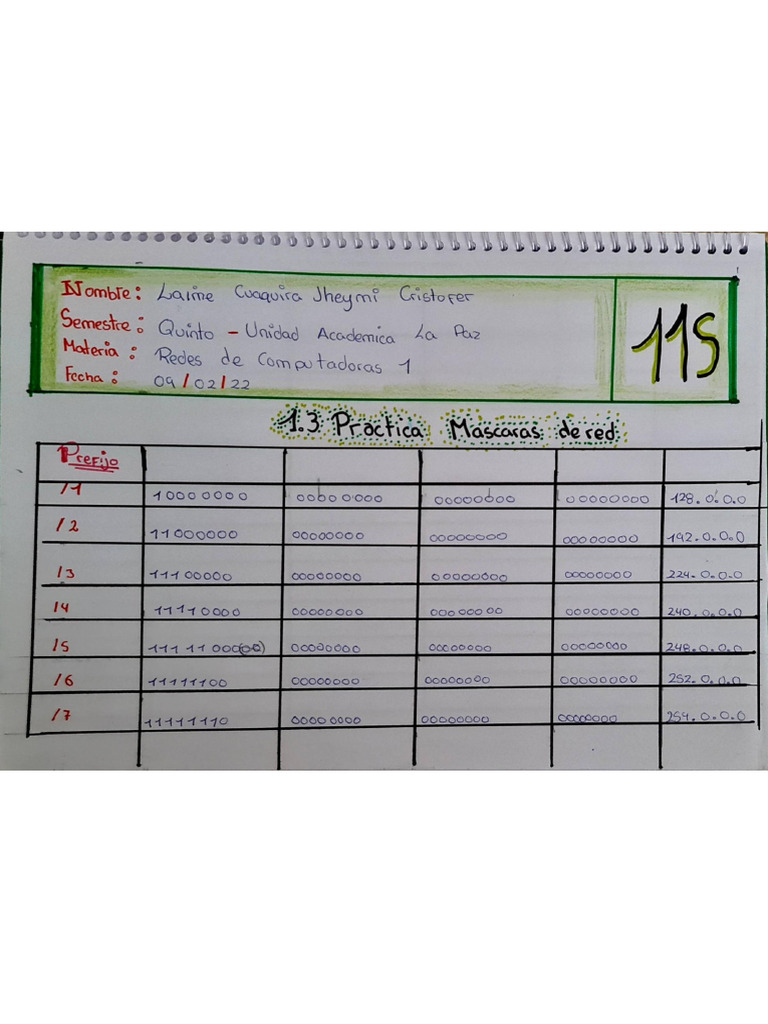 Nombre: Laime Cuaquira Jheymi Cristofer
Semestre: Quinto - Unidad Academica La Paz
Materia: Redes de Computadoras 1
Fecha: 09/02/22
11S
1.3 Practica Mascaras de red
Prefijo
/1 10000000 00000000 00000000 00000000 128.0.0.0
/2 11000000 00000000 00000000 00000000 192.0.0.0
/3 11100000 00000000 00000000 00000000 224.0.0.0
/4 11110000 00000000 00000000 00000000 240.0.0.0
/5 1111100000(00) 00000000 00000000 00000000 248.0.0.0
/6 11111100 00000000 00000000 00000000 252.0.0.0
/7 11111110 00000000 00000000 00000000 254.0.0.0